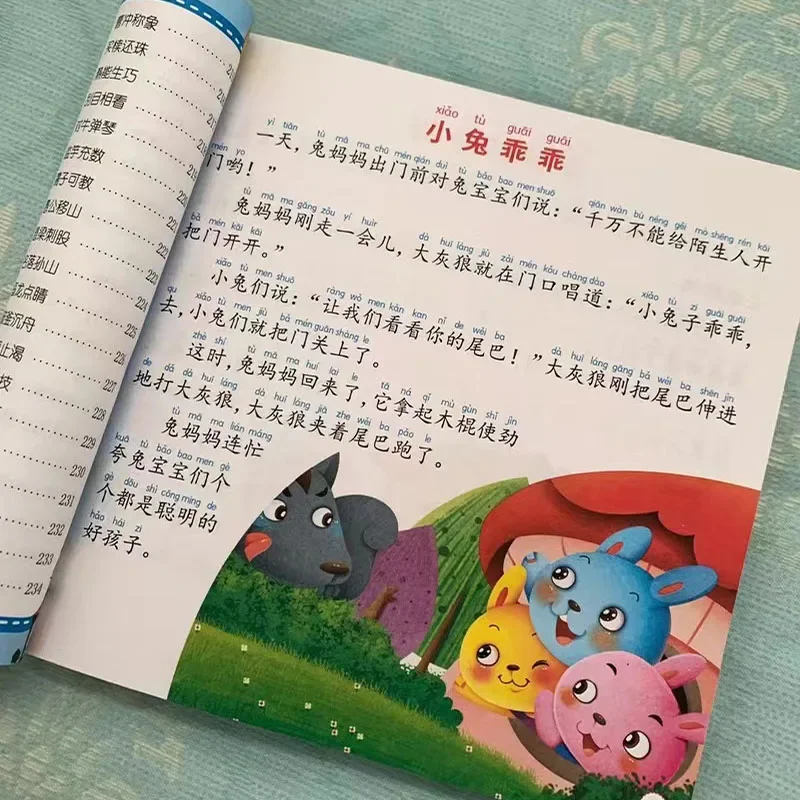 冲称象
椟还珠
能生巧
目相看
牛弹琴
充数
子可教
公移山
梁刺股
落孙山
龙点睛
釜沉舟
止渴
技
224
225
226
227
229
230
231
232
233
234
xiǎo tù guāi guāi
小兔乖乖
yì tiān tù mā ma chū mén qián duì tù bǎo bao men shuō qiān wàn bù néng gěi mò shēng rén kāi
一天，兔妈妈出门前对兔宝宝们说：“千万不能给陌生人开
mén yo
门哟！”
tù mā ma gāng zǒu yí huìr dà huī láng jiù zài mén kǒu chàng dào xiǎo tù zi guāi guāi
兔妈妈刚走一会儿，大灰狼就在门口唱道：“小兔子乖乖，
bǎ mén kāi kāi
把门开开。”
xiǎo tù men shuō ràng wǒ men kàn kan nǐ de wěi ba dà huī láng gāng bǎ wěi ba shēn jìn
小兔们说：“让我们看看你的尾巴！”大灰狼刚把尾巴伸进
qu xiǎo tù men jiù bǎ mén guān shàng le
去，小兔们就把门关上了。
zhè shí tù mā ma huí lai le tā ná qǐ mù gùn shǐ jìn
这时，兔妈妈回来了，它拿起木棍使劲
de dǎ dà huī láng dà huī láng jiā zhe wěi ba pǎo le
地打大灰狼，大灰狼夹着尾巴跑了。
tù mā ma lián máng
兔妈妈连忙
kuā tù bǎo bao men gè
夸兔宝宝们个
gè dōu shì cōng ming de
个都是聪明的
hǎo hái zi
好孩子。